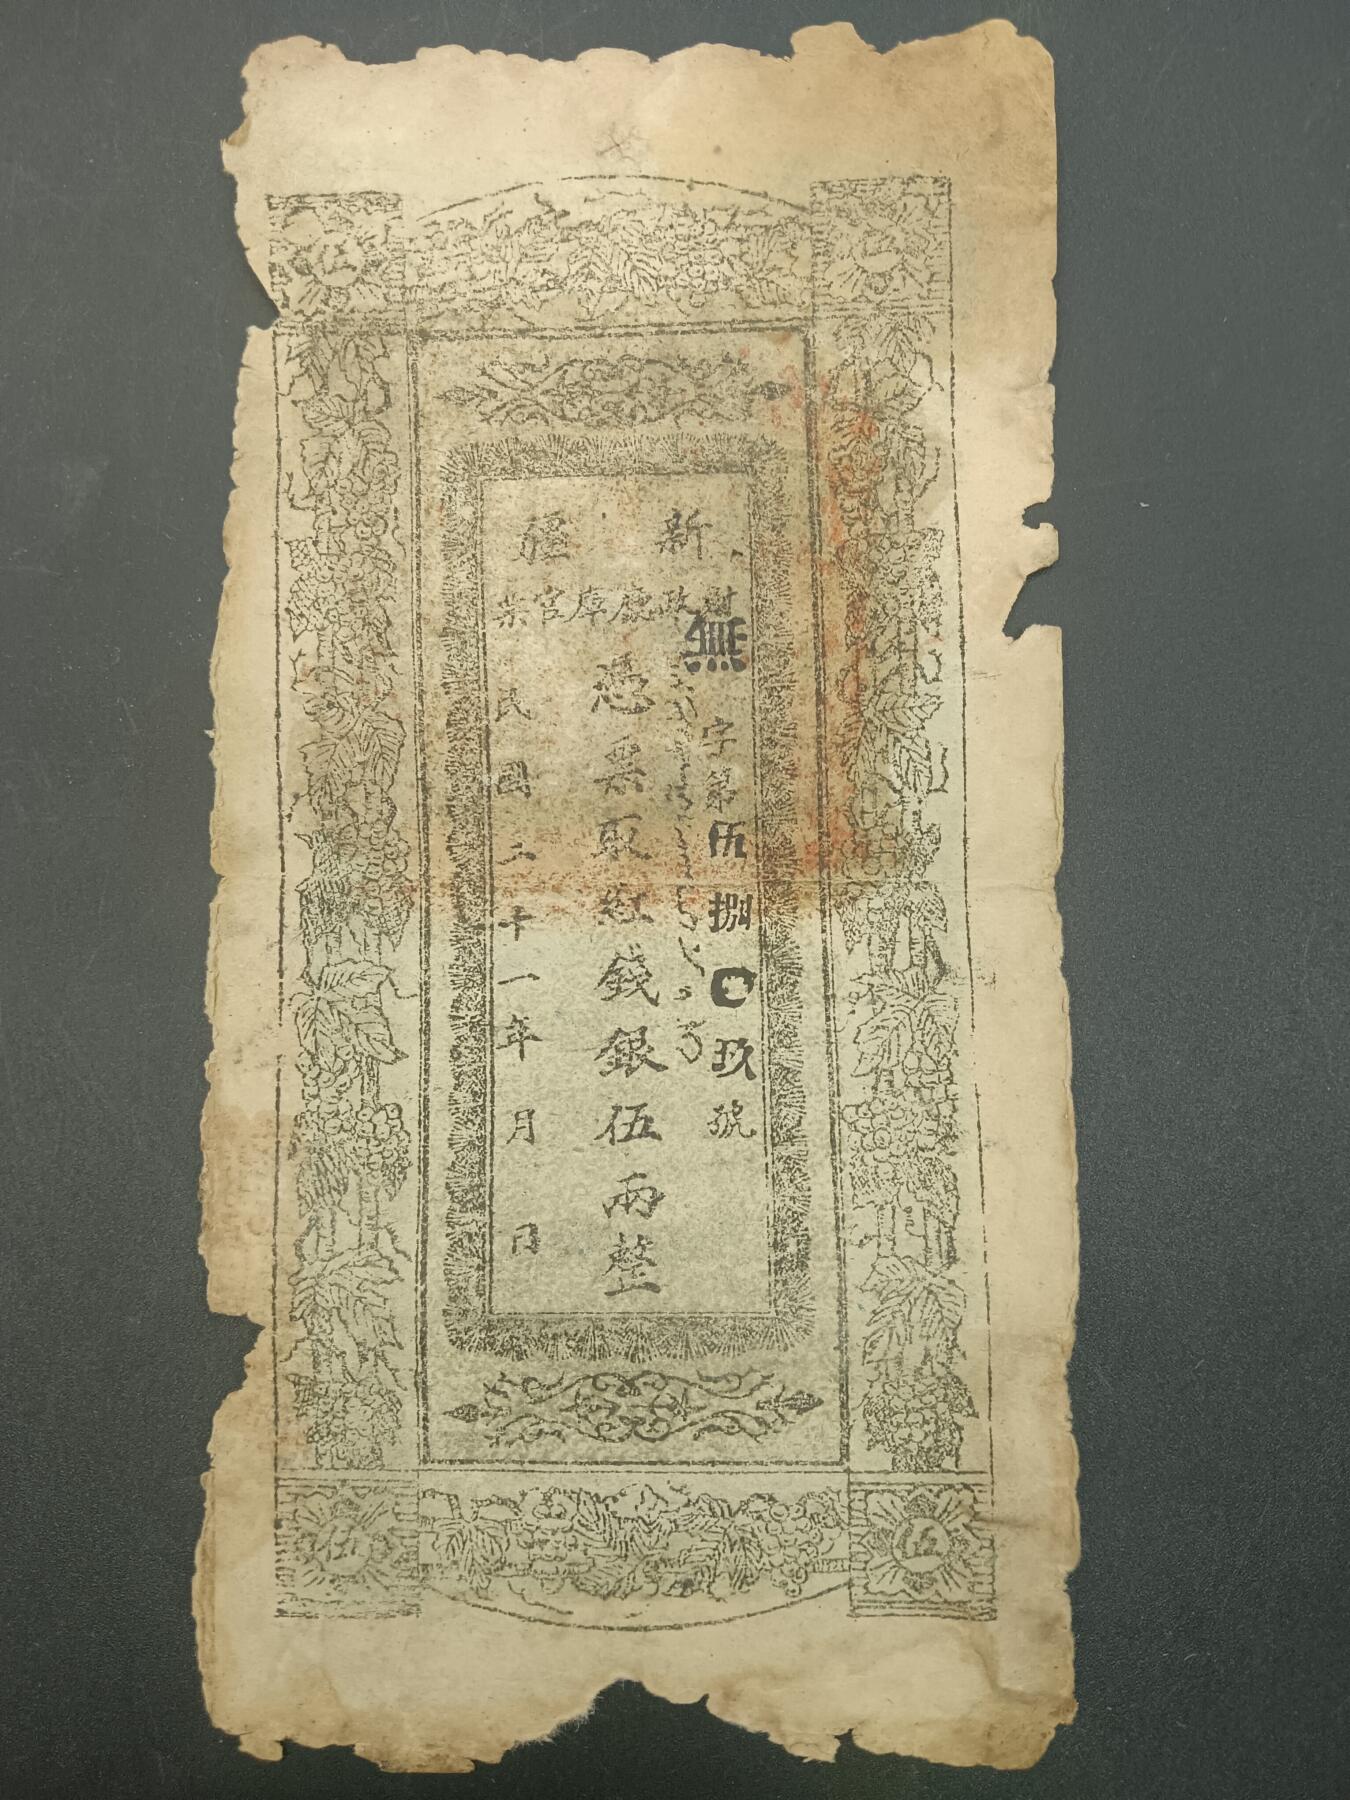 伍
伍
新疆
財政廳庫官票
無字第伍捌〇玖號
憑票取紅錢銀伍兩整
民國二十一年 月 日
伍
伍